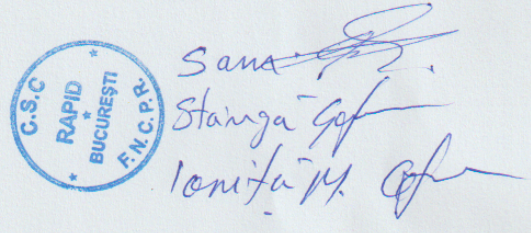 C.S.C
RAPID
BUCUREȘTI
F.N.C.P.R.
Sana
Stângă
Ioniță M.